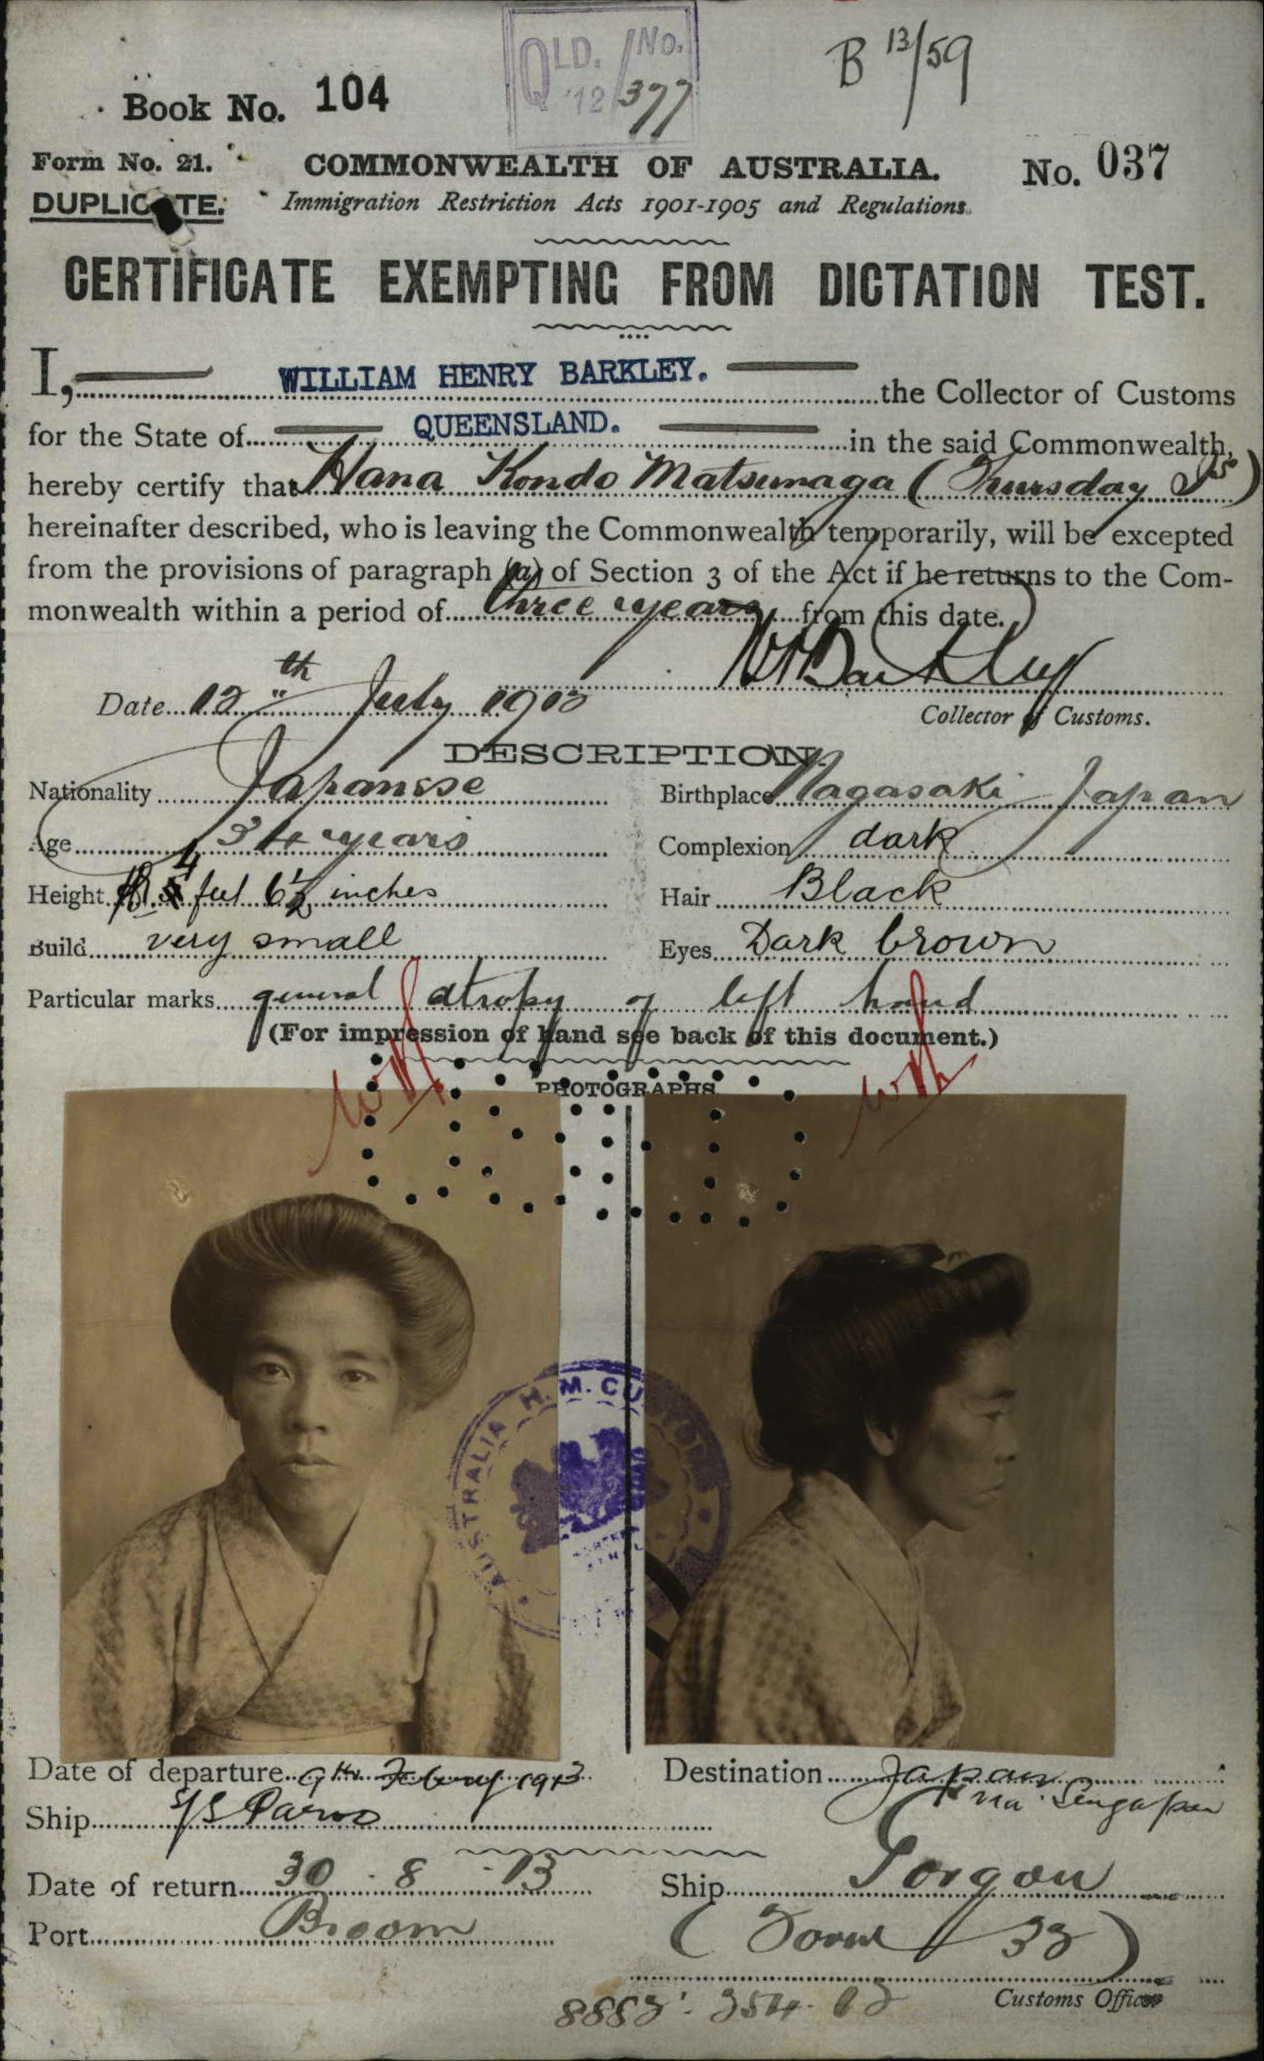 QLD. No.
'12 377
B 13/59
Book No. 104
Form No. 21.
COMMONWEALTH OF AUSTRALIA.
No. 037
DUPLICATE.
Immigration Restriction Acts 1901-1905 and Regulations.
CERTIFICATE EXEMPTING FROM DICTATION TEST.
I, WILLIAM HENRY BARKLEY. the Collector of Customs
for the State of QUEENSLAND. in the said Commonwealth,
hereby certify that Hana Kondo Matsunaga (Thursday Is)
hereinafter described, who is leaving the Commonwealth temporarily, will be excepted
from the provisions of paragraph (a) of Section 3 of the Act if he returns to the Com-
monwealth within a period of three years from this date.
WHBarkley
Date 12th July 1912
Collector of Customs.
DESCRIPTION.
Nationality Japanese
Birthplace Nagasaki Japan
Age 34 years
Complexion dark
Height 4 feet 6½ inches
Hair Black
Build very small
Eyes Dark brown
Particular marks general atrophy of left hand
(For impression of hand see back of this document.)
PHOTOGRAPHS
AUSTRALIA H. M. CUSTOMS
Date of departure 9th Febury 1913
Destination Japan
via Singapore
Ship S/S Paroo
Date of return 30 - 8 - 13
Ship Gorgon
Port Broom
(Form 32)
Customs Officer